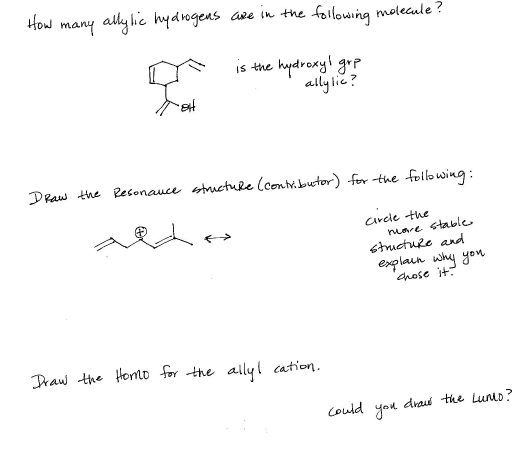 How many allylic hydrogens are in the following molecule?
is the hydroxyl grp
allylic?
OH
Draw the Resonance structure (contributor) for the following:
circle the
more stable
structure and
explain why you
chose it.
⊕
↔
Draw the Homo for the allyl cation.
Could you draw the Lumo?